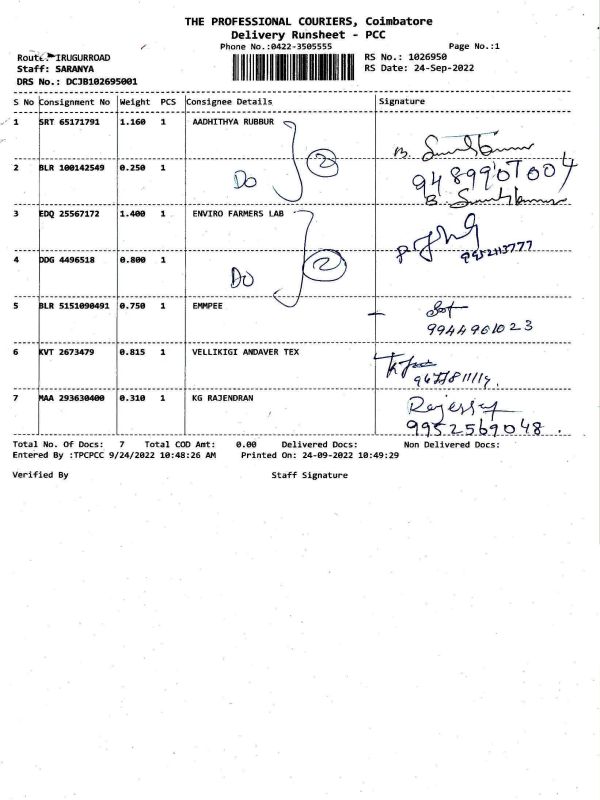 THE PROFESSIONAL COURIERS, Coimbatore
Delivery Runsheet - PCC
Phone No.:0422-3505555 Page No.:1
Route: IRUGURROAD RS No.: 1026950
Staff: SARANYA RS Date: 24-Sep-2022
DRS No.: DCJB102695001
S No Consignment No Weight PCS Consignee Details Signature
1 SRT 65171791 1.160 1 AADHITHYA RUBBUR
2 BLR 100142549 0.250 1 Do 2
3 EDQ 25567172 1.400 1 ENVIRO FARMERS LAB
9952113777
4 DDG 4496518 0.800 1 Do 2
5 BLR 5151090491 0.750 1 EMMPEE
9944961023
6 KVT 2673479 0.815 1 VELLIKIGI ANDAVER TEX
7 MAA 293630400 0.310 1 KG RAJENDRAN
9952569048.
Total No. Of Docs: 7 Total COD Amt: 0.00 Delivered Docs: Non Delivered Docs:
Entered By :TPCPCC 9/24/2022 10:48:26 AM Printed On: 24-09-2022 10:49:29
Verified By Staff Signature